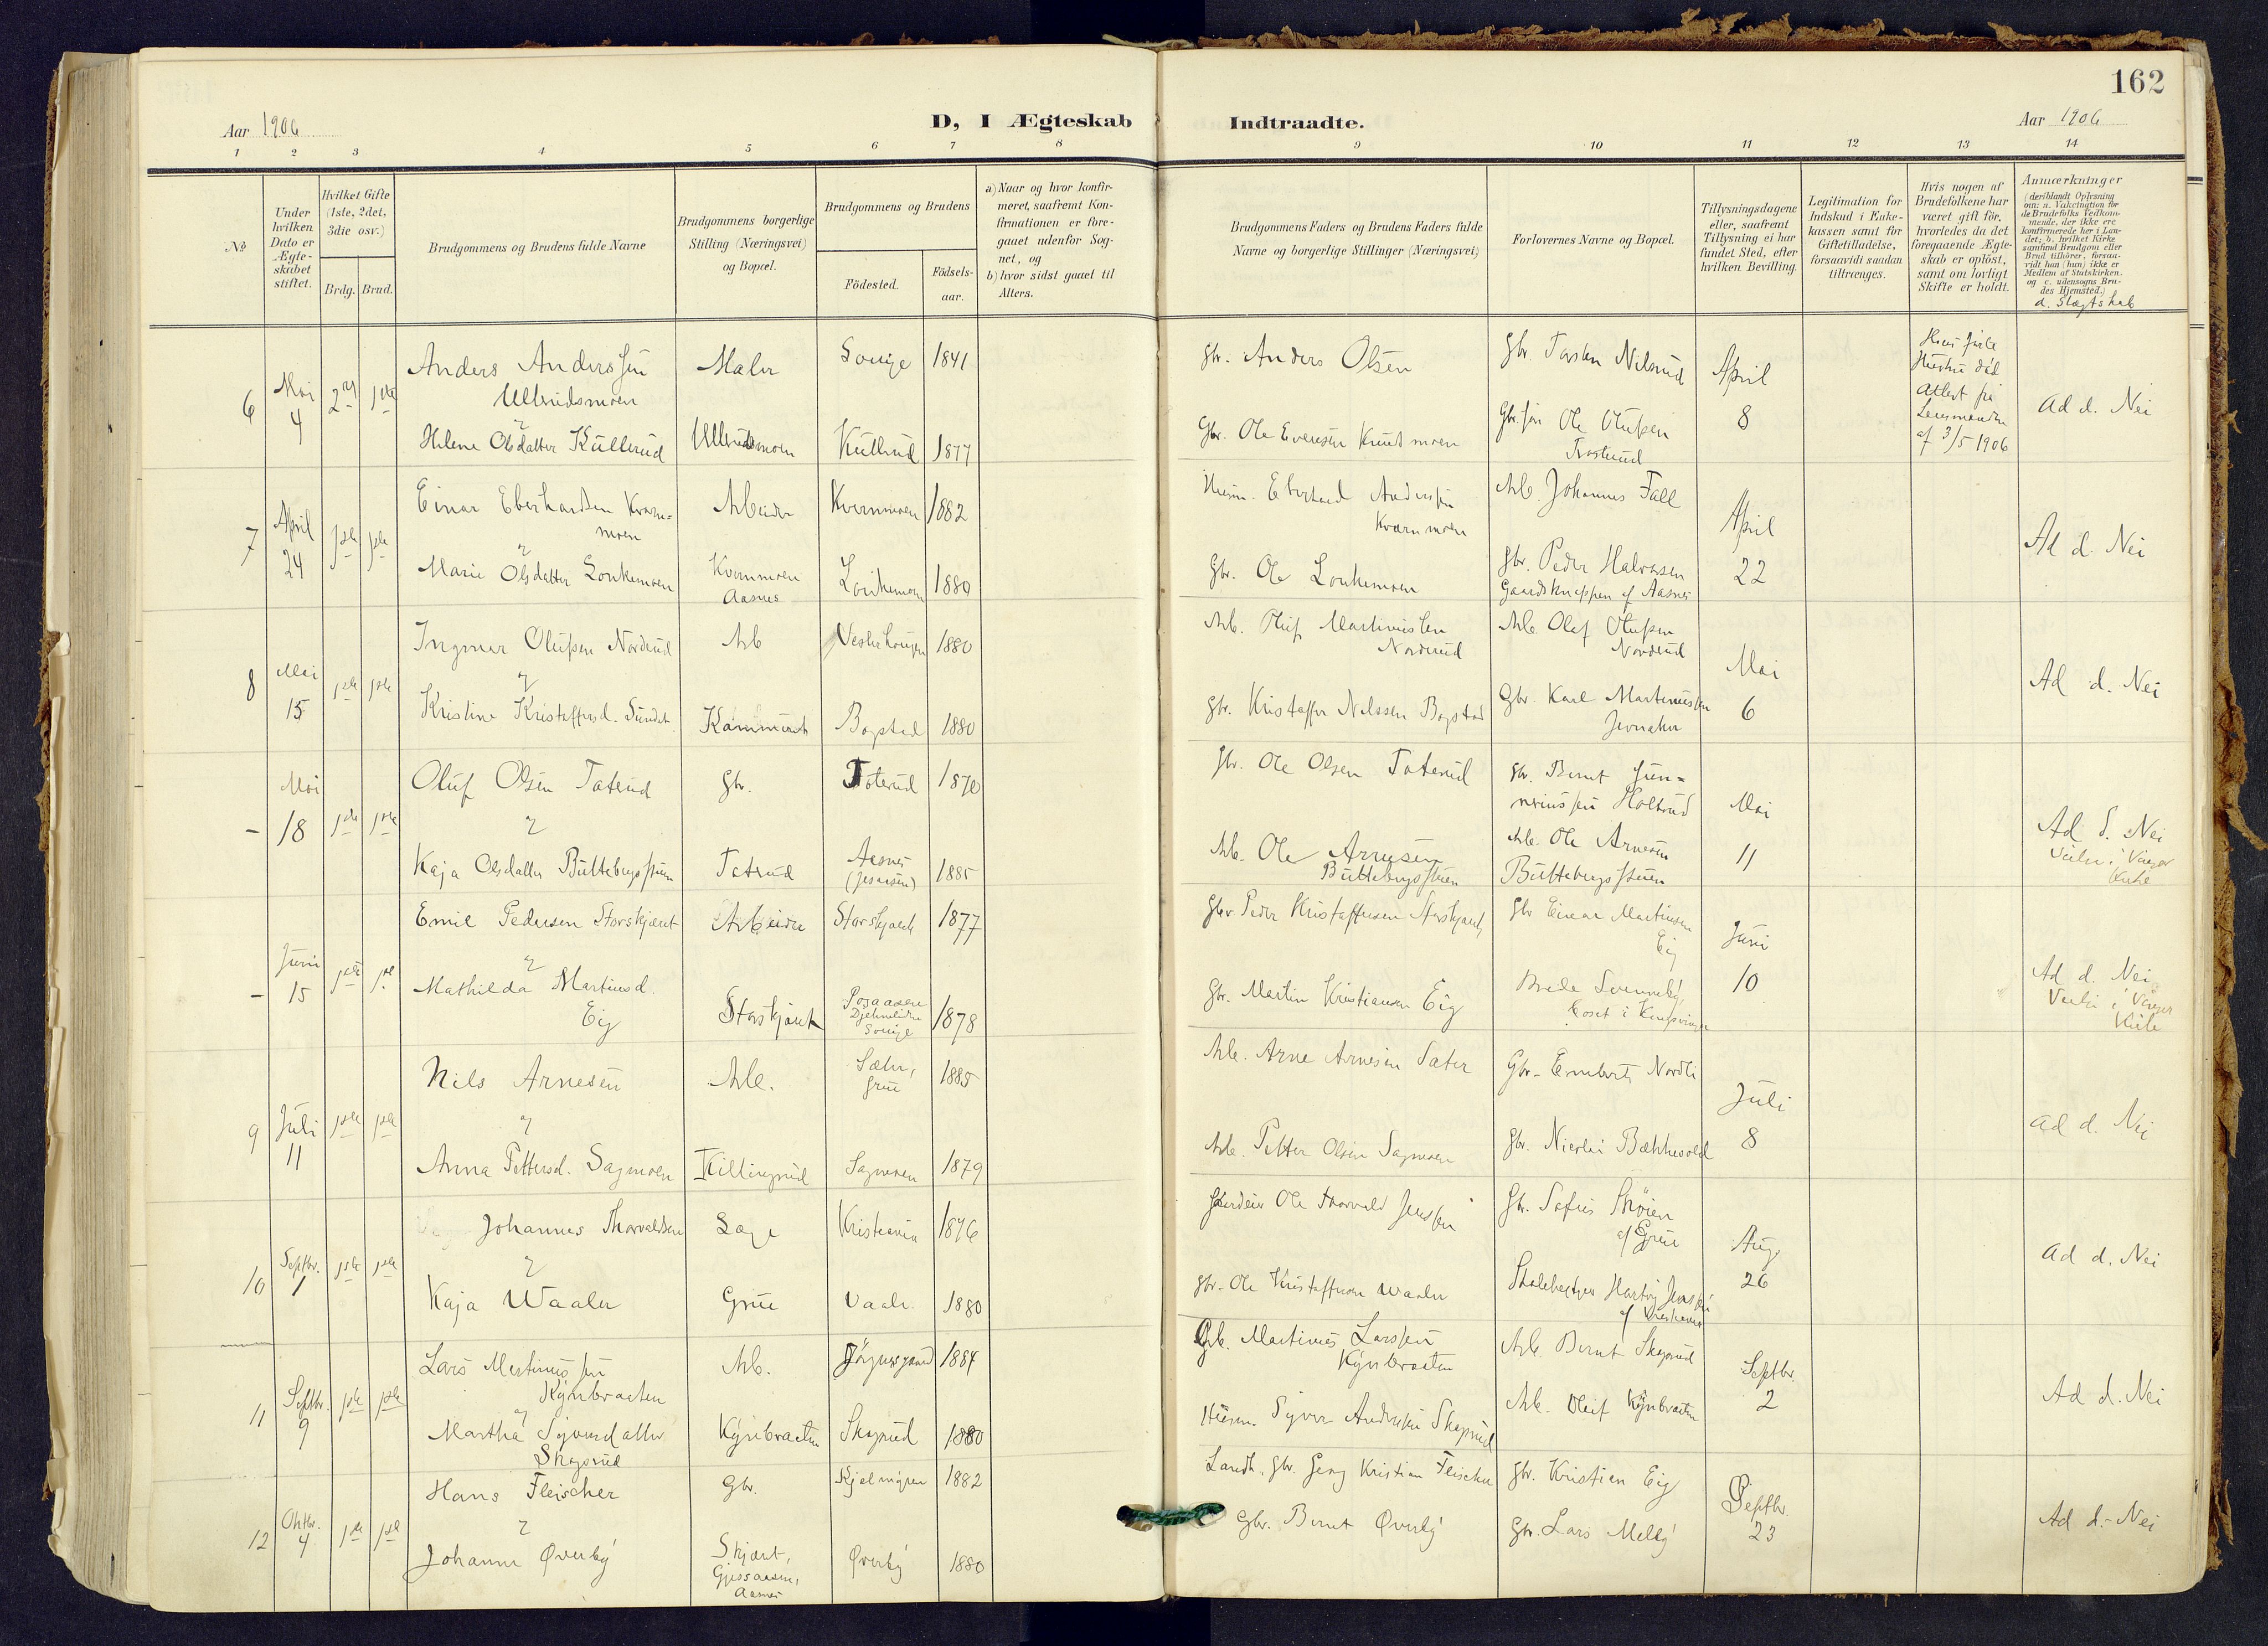 162
Aar 1906
D, I Ægteskab
Indtraadte.
Aar 1906
1 2 3 4 5 6 7 8 9 10 11 12 13 14
№
Under
hvilken
Dato er
Ægte-
skabet
stiftet.
Hvilket Gifte
(1ste, 2det,
3die osv.)
Brdg. Brud.
Brudgommens og Brudens fulde Navne
Brudgommens borgerlige
Stilling (Næringsvei)
og Bopæl.
Brudgommens og Brudens
Födested.
Födsels-
aar.
a) Naar og hvor konfir-
meret, saafremt Kon-
firmationen er fore-
gaaet udenfor Sog-
net, og
b) hvor sidst gaaet til
Alters.
Brudgommens Faders og Brudens Faders fulde
Navne og borgerlige Stillinger (Næringsvei)
Forlovernes Navne og Bopæl.
Tillysningsdagene
eller, saafremt
Tillysning ei har
fundet Sted, efter
hvilken Bevilling.
Legitimation for
Indskud i Enke-
kassen samt for
Giftetilladelse,
forsaavidt saadan
tiltrænges.
Hvis nogen af
Brudefolkene har
været gift för,
hvorledes da det
foregaaende Ægte-
skab er oplöst,
samt om lovligt
Skifte er holdt.
Anmærkninger
(deriblandt Oplysning
om: a. Vakcination for
de Brudefolks Vedkom-
mende, der ikke ere
konfirmerede her i Lan-
det; b. hvilket Kirke-
samfund Brudgom eller
Brud tilhörer, forsaa-
vidt han (hun) ikke er
Medlem af Statskirken.
og c. udensogns Bru-
des Hjemsted.)
d. Slægtskab
6
Mai
4
2
1ste
Anders Anderssen
Ullerudsmoen
Helene Olsdatter Kullerud
Maler
Ullerudsmoen
Kullerud
1841
1877
Gbr. Anders Olsen
Gbr. Ole Evensen
Gbr. Torsten Nilsrud
Ole Olufsen
April
8
Hustru död
Attest fra
Lensmanden
af 3/5 1906
Ad d. Nei
7
April
24
1ste 1ste
Einar Eberhardsen Kværn-
moen
Marie Olsdatter Lonkemoen
Arbeider
Kvernmoen
Aasnes
Kvernmoen
Lonkemoen
1882
1880
Husm. Eberhard Anderssen
Kværnmoen
Gbr. Ole Lonkemoen
Arb. Johannes Fall
Gbr. Peder Halvorsen
af Aasnes
April
22
Ad d. Nei
8
Mai
15
1ste 1ste
Ingmar Olufsen Nordrud
Kristine Kristoffersd. Sundet
Arb
Bogstad
1880
1880
Arb. Oluf Martiniussen
Nordrud
Gbr. Kristoffer Nilssen Bogstad
Arb. Olaf Olufsen
Nordrud
Gbr. Karl Martiniussen
Mai
6
Ad d. Nei
–
Mai
18
1ste 1ste
Oluf Olsen Taterud
Kaja Olsdatter Büttebergsstuen
Gbr.
Taterud
Aasnes
1870
1885
Gbr. Ole Olsen Taterud
Arb. Ole Arnesen
Büttebergsstuen
Gbr. Bernt Gun-
neriussen Holtrud
Arb. Ole Arnesen
Büttebergsstuen
Mai
11
Ad d. Nei
–
Juni
15
1ste 1ste
Emil Pedersen Storskjæret
Mathilda Martinsd.
Eig
Arbeider
Sverige
1877
1878
Gbr. Martin Kristiansen Eig
Gbr Einar Martinsen
Eig
Juni
10
Ad d. Nei
9
Juli
11
1ste 1ste
Nils Arnesen
Anna Pettersd. Sagmoen
Arb.
Killingrud
Sæter,
Grue
Sagmoen
1885
1879
Arb. Arne Arnesen Sæter
Arb. Petter Olsen Sagmoen
Gbr. Nordli
Gbr. Nicolai Bækkevold
Juli
8
Ad d. Nei
10
Septbr.
1
1ste 1ste
Johannes Thorvaldsen
Kaja Waaler
Læge
Grue
Kristiania
Vaaler
1876
1880
Ole Thorvald Jenssen
Gbr. Ole Kristoffersen Waaler
Gbr. Sofus Skøien
af Grue
Skolebestyrer Hartvig Jenssen
af Kristiania
Aug
26
Ad d. Nei
11
Septbr.
9
1ste 1ste
Lars Martinussen
Kynbraaten
Martha Syversdatter
Skogsrud
Arb.
Kynbraaten
1884
1880
Arb. Martinus Larssen
Kynbraaten
Husm. Syver Anderssen Skogsrud
Arb. Bernt Skogsrud
Arb. Oluf Kynbraaten
Septbr.
2
Ad d. Nei
12
Oktbr.
4
1ste 1ste
Hans Fleischer
Johanne Øverby
Gbr.
Skjæret,
Gjesaasen,
Aasnes
Øverby
1882
1880
Landh. Gbr. Georg Kristian Fleischer
Gbr. Bernt Øverby
Gbr. Kristian Eig
Gbr. Lars Melby
Septbr.
23
Ad d. Nei